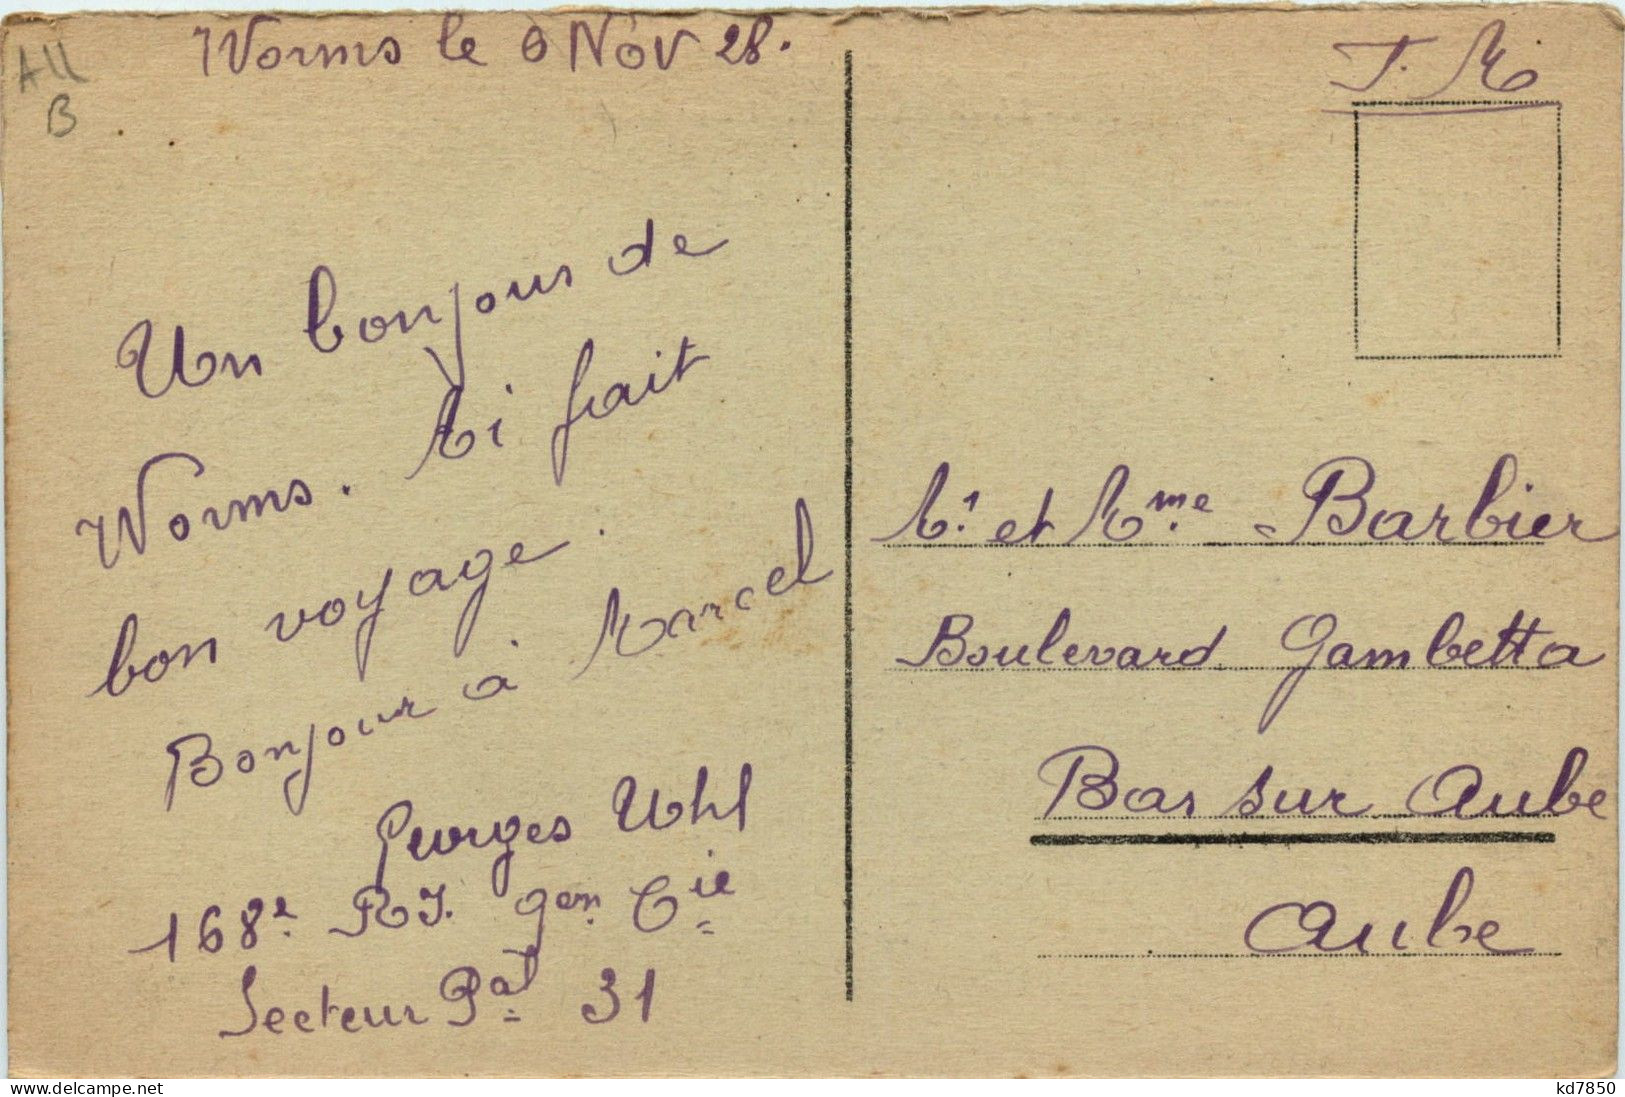 All
B
Worms le 6 Nov 28.
Un bonjour de
Worms. Ai fait
bon voyage.
Bonjour à Marcel
Georges Uhl
168e RI. 9em Cie
Secteur Pal 31
F. M
Mr. et Mme Barbier
Boulevard Gambetta
Bar sur Aube
Aube
www.delcampe.net
kd7850